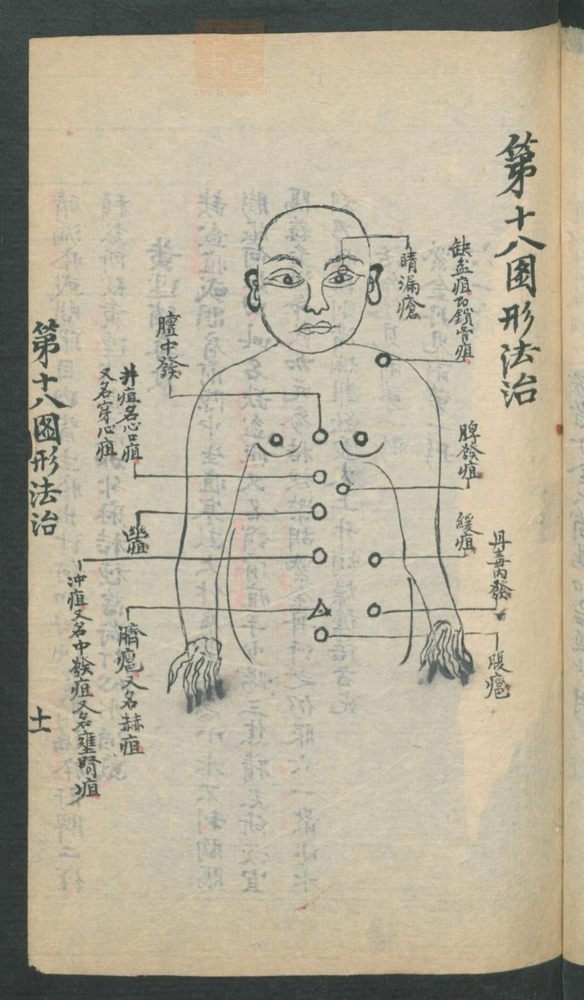 第十八圖形法治
缺盆疽乃鎖骨疽
睛漏瘡
脾發疽
緩疽
丹毒內發
腹癰
膻中發
井疽名心口疽
又名穿心疽
臍癰又名赫疽
冲疽又名中發疽又名壅腎疽
第十八圖形法治
十一